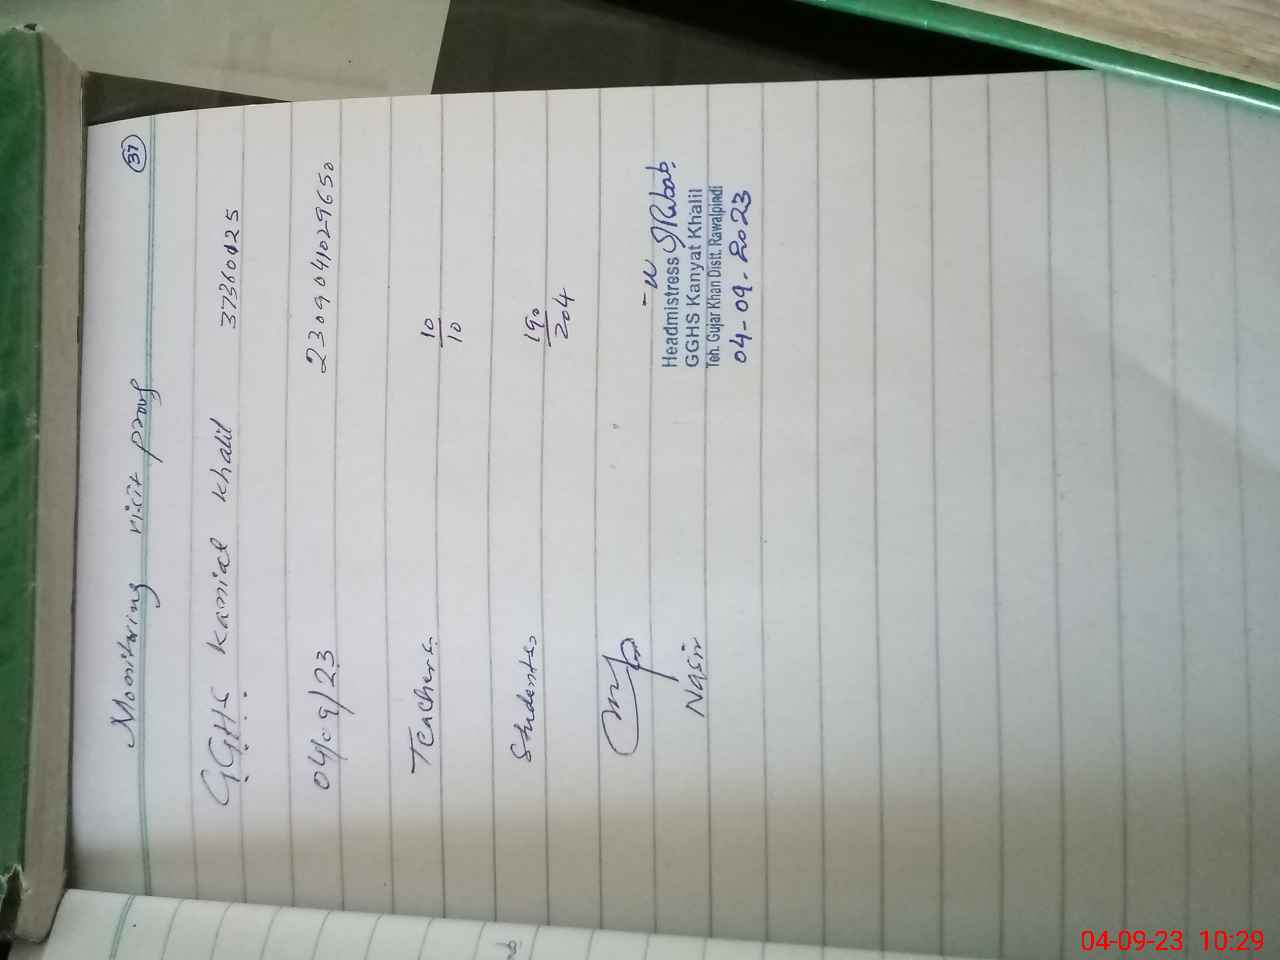 37
Monitoring visit proof
GGHS Kanial Khalil 37360125
04/09/23 2309041029650
Teachers 10/10
Students 190/204
Nasir
Headmistress
GGHS Kanyat Khalil
Teh. Gujar Khan Distt. Rawalpindi
04-09-2023
04-09-23 10:29